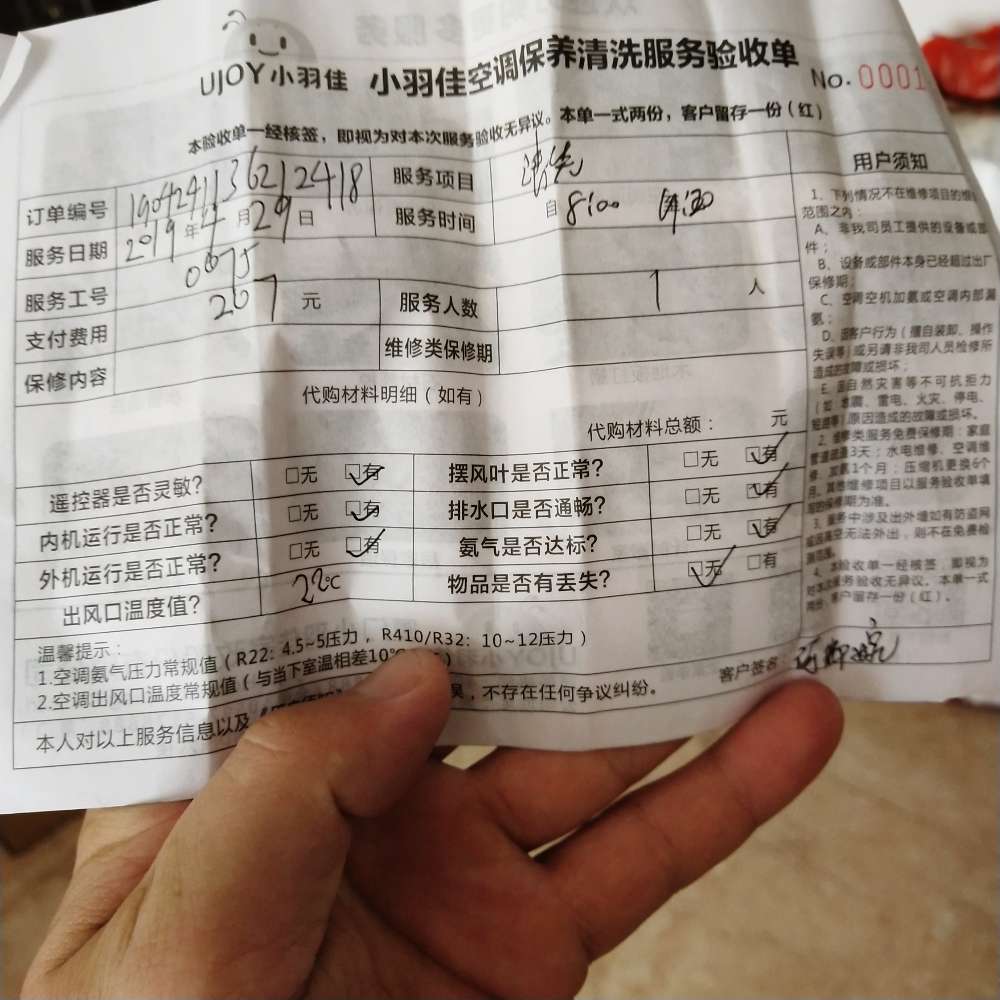 UJOY小羽佳 小羽佳空调保养清洗服务验收单 No. 0001
本验收单一经核签，即视为对本次服务验收无异议。本单一式两份，客户留存一份（红）
订单编号 19042411136212418 服务项目 清洗
服务日期 2019 年 4 月 29 日 服务时间 自 8:00
服务工号 0675
支付费用 207 元 服务人数 1 人
保修内容 维修类保修期
代购材料明细（如有）
代购材料总额： 元
遥控器是否灵敏? □无 □有 摆风叶是否正常? □无 □有
内机运行是否正常? □无 □有 排水口是否通畅? □无 □有
外机运行是否正常? □无 □有 氨气是否达标? □无 □有
出风口温度值? 22℃ 物品是否有丢失? □无 □有
温馨提示：
1.空调氨气压力常规值（R22: 4.5~5压力，R410/R32: 10~12压力）
2.空调出风口温度常规值（与当下室温相差10℃
本人对以上服务信息以及 误，不存在任何争议纠纷。
客户签名
用户须知
1、下列情况不在维修项目的维
范围之内：
A、非我司员工提供的设备或部
件；
B、设备或部件本身已经超过出厂
保修期；
C、空调空机加氨或空调内部漏
氨；
D、因客户行为（擅自装卸、操作
失误等）或另请非我司人员检修所
造成的故障或损坏；
E、因自然灾害等不可抗拒力
（如 地震、雷电、火灾、停电、
短路等）原因造成的故障或损坏。
2、维修类服务免费保修期：家庭
管道疏通3天；水电维修、空调维
修、加氨1个月；压缩机更换6个
月。其他维修项目以服务验收单填
服的保修期为准。
3、服务中涉及出外墙如有防盗网
或因高空无法外出，则不在免费检
测范围。
4、本验收单一经核签，即视为
对本次服务验收无异议。本单一式
两份，客户留存一份（红）。